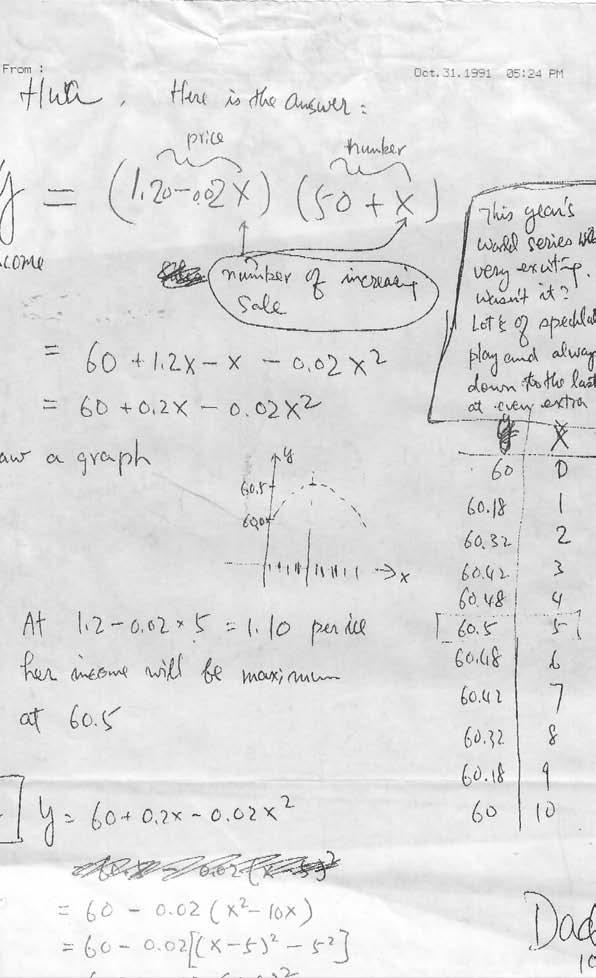 From :
Oct.31.1991 05:24 PM
Here is the answer :
price
number
y = (1.20-0.02X) (50 + X)
come
number of increasing
sale
= 60 + 1.2X - X - 0.02X²
= 60 + 0.2X - 0.02X²
aw a graph
y
60.5
60.0
x
At 1.2 - 0.02 × 5 = 1.10 per
her income will be maximum
at 60.5
y = 60 + 0.2x - 0.02x²
= 60 - 0.02 (x² - 10x)
= 60 - 0.02[(x-5)² - 5²]
This year's
world series
very exciting.
wasn't it?
Lots of
play and alway
down to the last
at every extra
y X
60 0
60.18 1
60.32 2
60.42 3
60.48 4
60.5 5
60.48 6
60.42 7
60.32 8
60.18 9
60 10
Dad
10